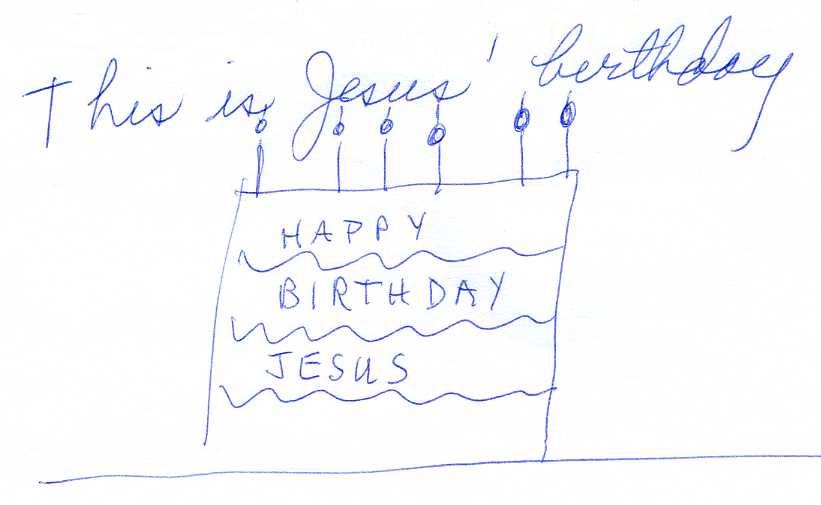 This is Jesus' birthday
HAPPY
BIRTHDAY
JESUS